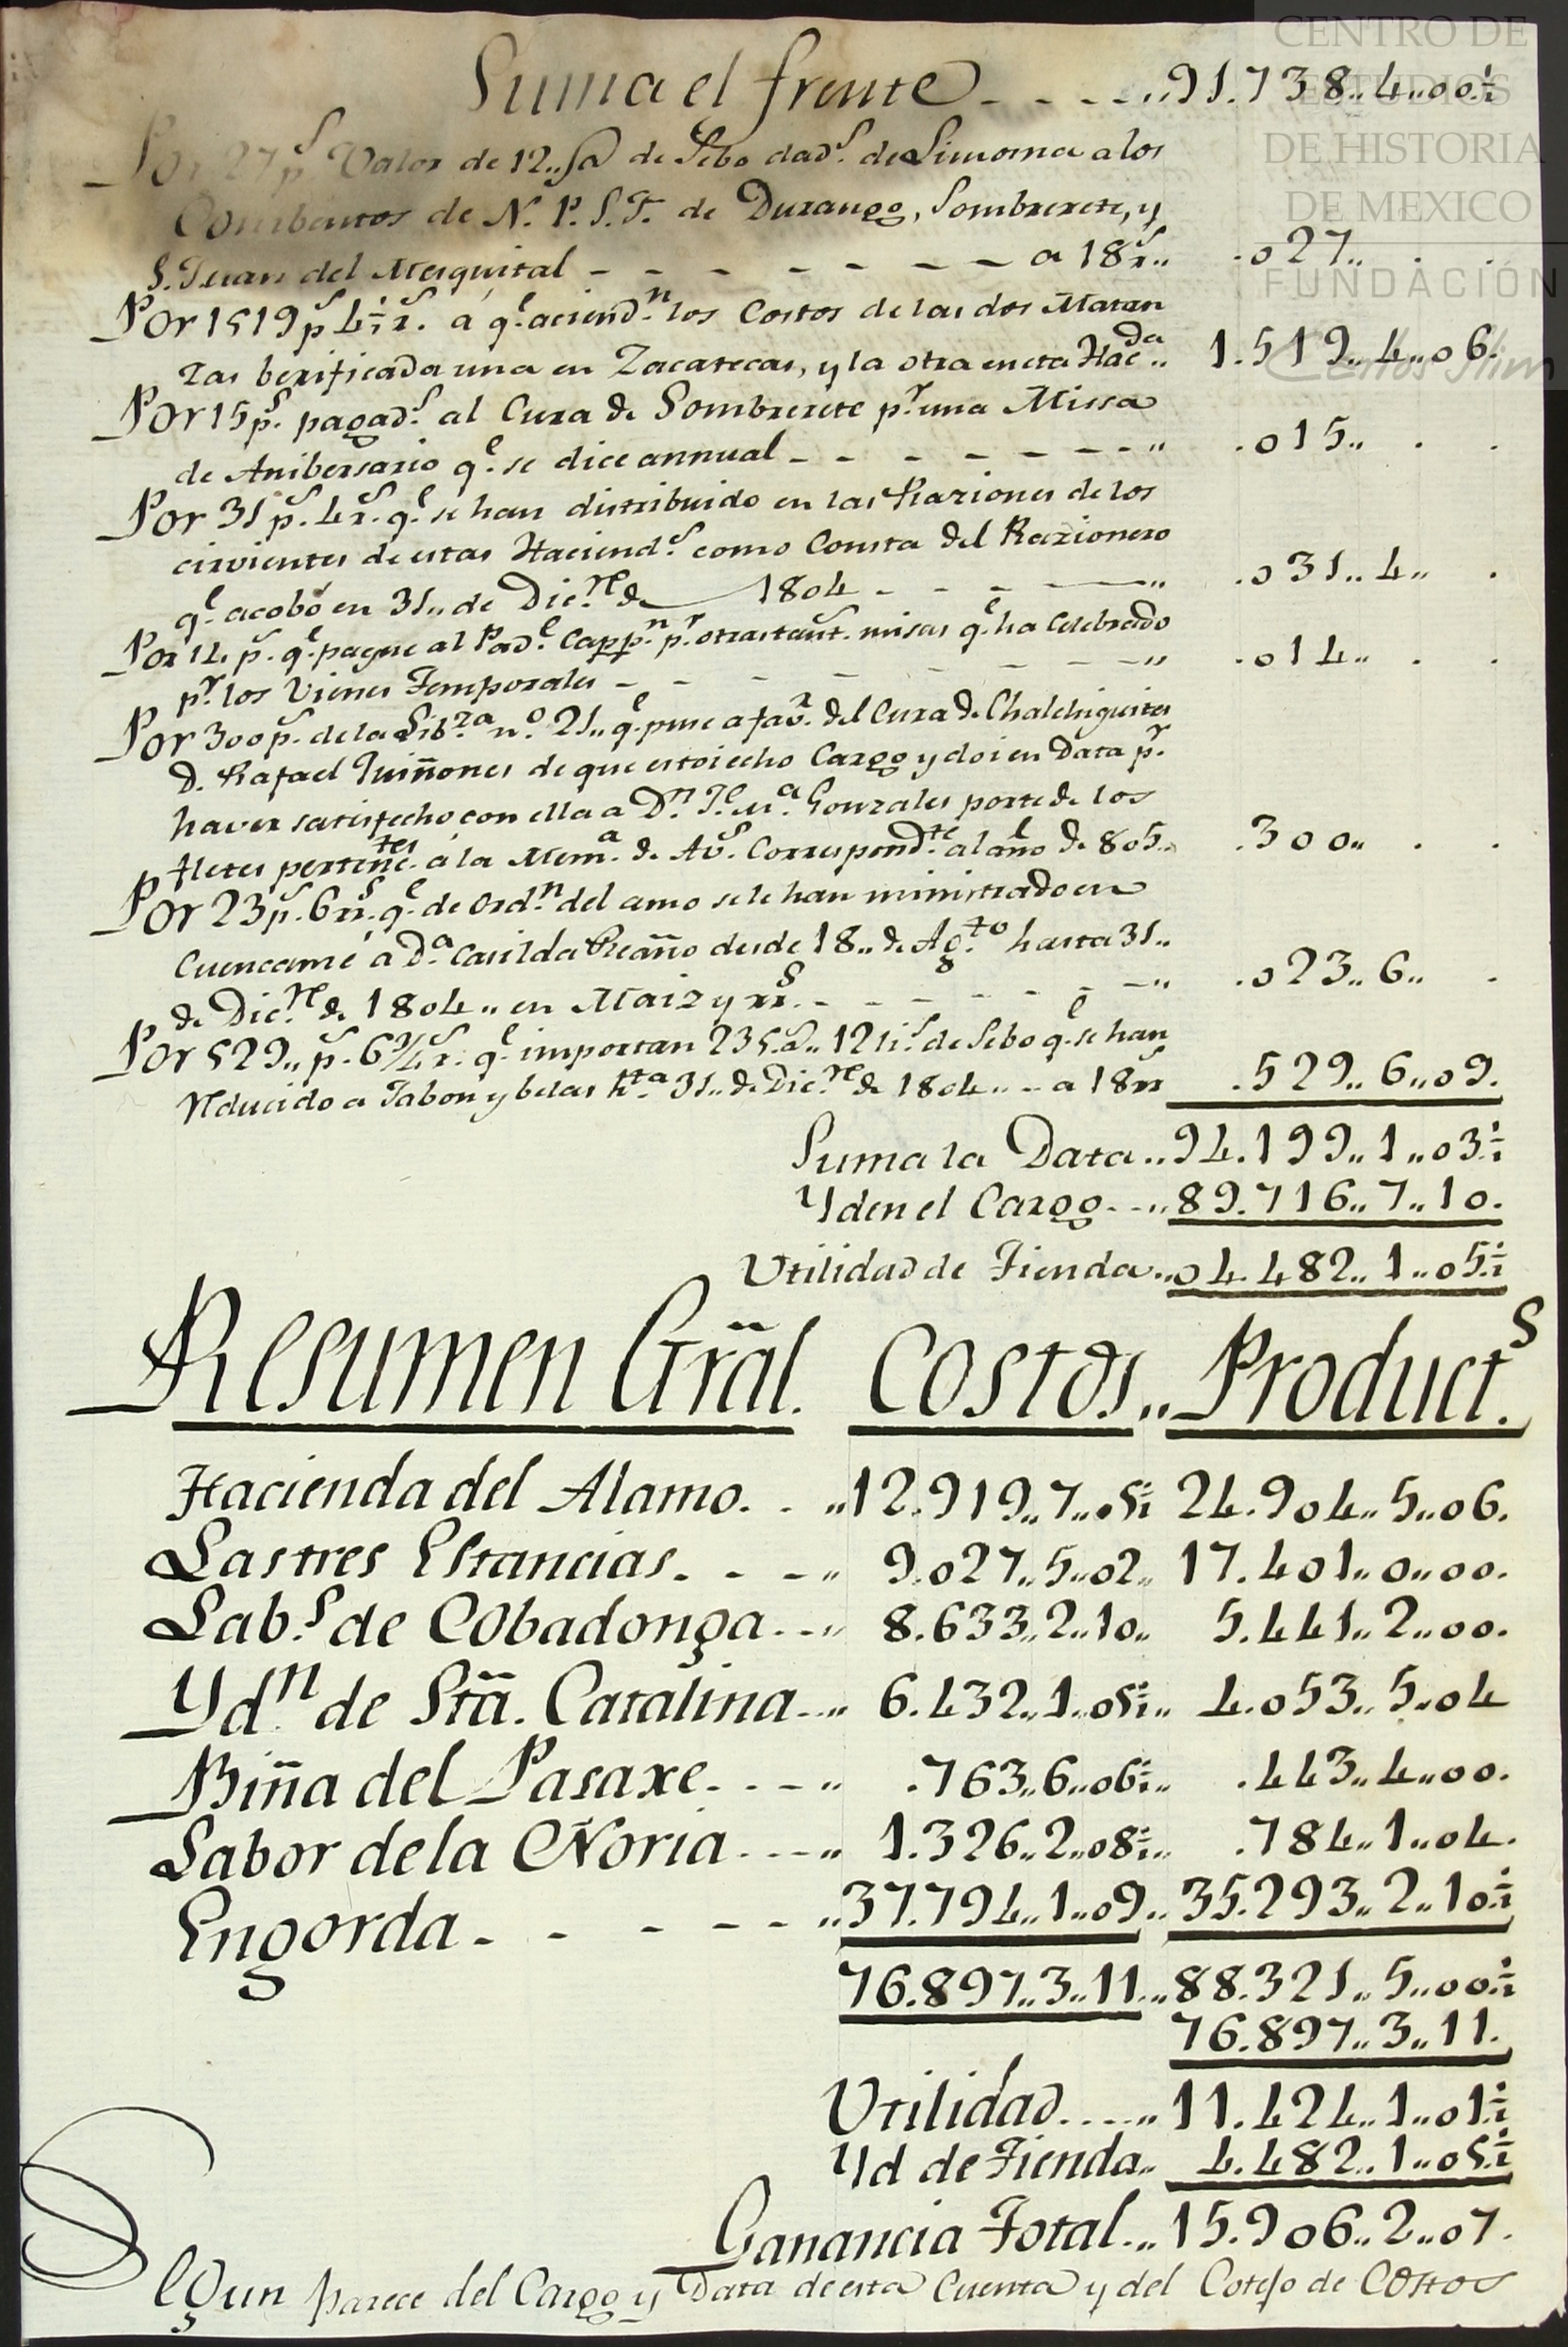 CENTRO DE
ESTUDIOS
DE HISTORIA
DE MEXICO
FUNDACIÓN
Carlos Slim
Suma el frente - - - - ..91.738..4..00½
Por 27 ps. Valor de 12..@ de Sebo dads. de Limosna a los
Combentos de N. P. S. F. de Durango, Sombrerete, y
S. Juan del Mesquital - - - - - - - - a 18 rs.. .027.. . .
Por 1519 ps 4½ rs. á qe. aciendn. los Costos de las dos Matan
zas berificada una en Zacatecas, y la otra en eta Hacda.. 1.519..4..06.
Por 15 ps. pagads. al Cura de Sombrerete pr. una Missa
de Anibersario qe. se dice annual - - - - - - - " .015.. . .
Por 31 ps. 4 rs. qe. se han distribuido en las Raziones de los
cirvientes de estas Haciends. como Consta del Razionero
qe. acobó en 31.. de Dicre. de 1804 - - - - - " .031..4.. .
Por 14 ps. qe. pague al Pade. Cappn. pr. otras tants. misas qe. ha Celebrado
pr. los Vienes Temporales - - - - - - - " .014.. . .
Por 300 ps. de la Libza. no. 21.. qe. puse a favr. del Cura de Chalchiguites
D. Rafael Quiñones de que estoi echo Cargo y doi en Data pr.
haver satisfecho con ella a Dn. Je. Ma. Gonzales porte de los
fletes pertenetes. á la Mema. de Avs. Correspondte. al año de 805.. .300.. . .
Por 23 ps. 6 rrs. qe. de Ordn. del amo se le han ministrado en
Cuencamé á Da. Casilda Reaño desde 18.. de Agto. hasta 31..
de Dicre. de 1804.. en Maiz y rrs. - - - - - - - " .023..6.. .
Por 529.. ps. 6¾ rs. qe. importan 235.@.. 12 lis. de Sebo qe. se han
Rducido a Jabon y belas hta. 31.. de Dicre. de 1804.. - a 18 rrs .529..6..09.
Suma la Data..94.199..1..03½
Yden el Cargo - - ..89.716..7..10.
Utilidad de Tienda..04.482..1..05½
Resumen Grãl. Costos.. Products.
Hacienda del Alamo. - ..12.919..7..05½ 24.904..5..06.
Las tres Estancias. - - - .. 9.027..5..02.. 17.401..0..00.
Labs. de Cobadonga - - .. 8.633..2..10.. 5.441..2..00.
Ydn. de Stã. Catalina - .. 6.432..1..05½.. 4.053..5..04
Biña del Pasaxe. - - - .. .763..6..06½.. .443..4..00.
Labor de la Noria - - - .. 1.326..2..08½.. .784..1..04.
Engorda - - - - - - ..37.794..1..09.. 35.293..2..10½
76.897..3..11...88.321..5..00½
76.897..3..11.
Utilidad.....11.424..1..01½
Yd de Tienda.. 4.482..1..05½
Ganancia Total...15.906..2..07.
Sgun parece del Cargo y Data de esta Cuenta y del Cotejo de Costos